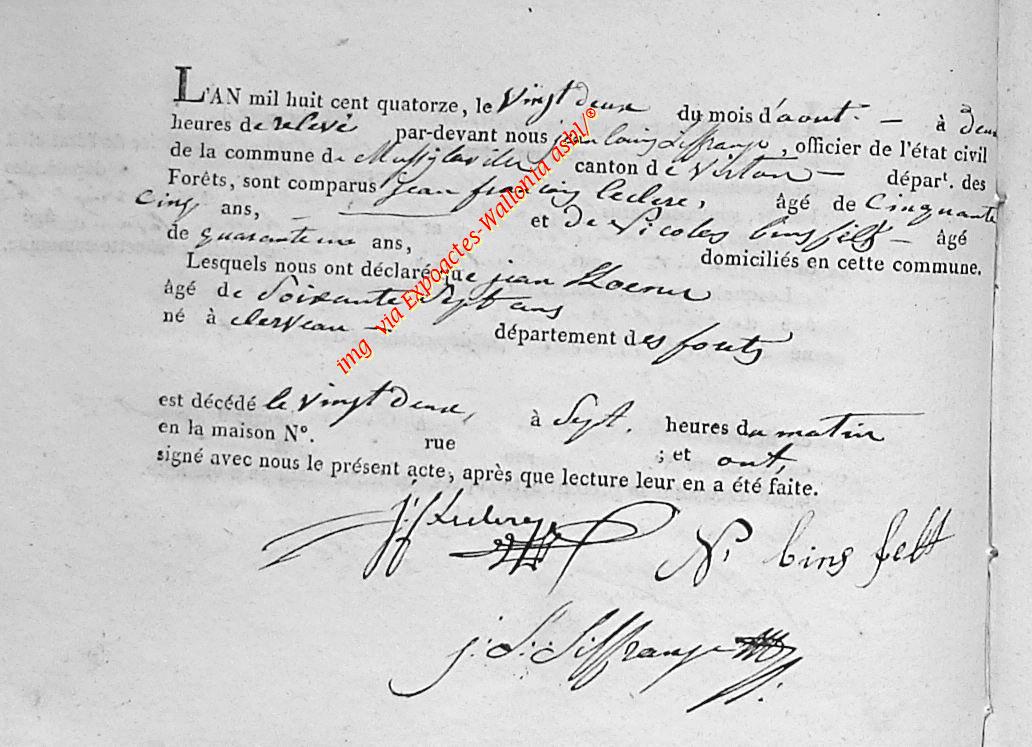 L'AN mil huit cent quatorze, le vingt deux du mois d'aout — à deux
heures de relevé par-devant nous jean louis Siffrange, officier de l'état civil
de la commune de Mussylaville canton de Virton — départ. des
Forêts, sont comparus jean francois leclere, âgé de Cinquante
cinq ans, — et de Nicolas binsfelt — âgé
de quarante un ans, domiciliés en cette commune.
Lesquels nous ont déclaré que jean
âgé de Soixante Sept ans
né à clerveau — département des forets
est décédé le vingt deux, à Sept. heures du matin
en la maison N°. rue ; et ont,
signé avec nous le présent acte, après que lecture leur en a été faite.
N. bins felt
j. L. Siffrange
img via Expoactes-Wallonia asbl/®